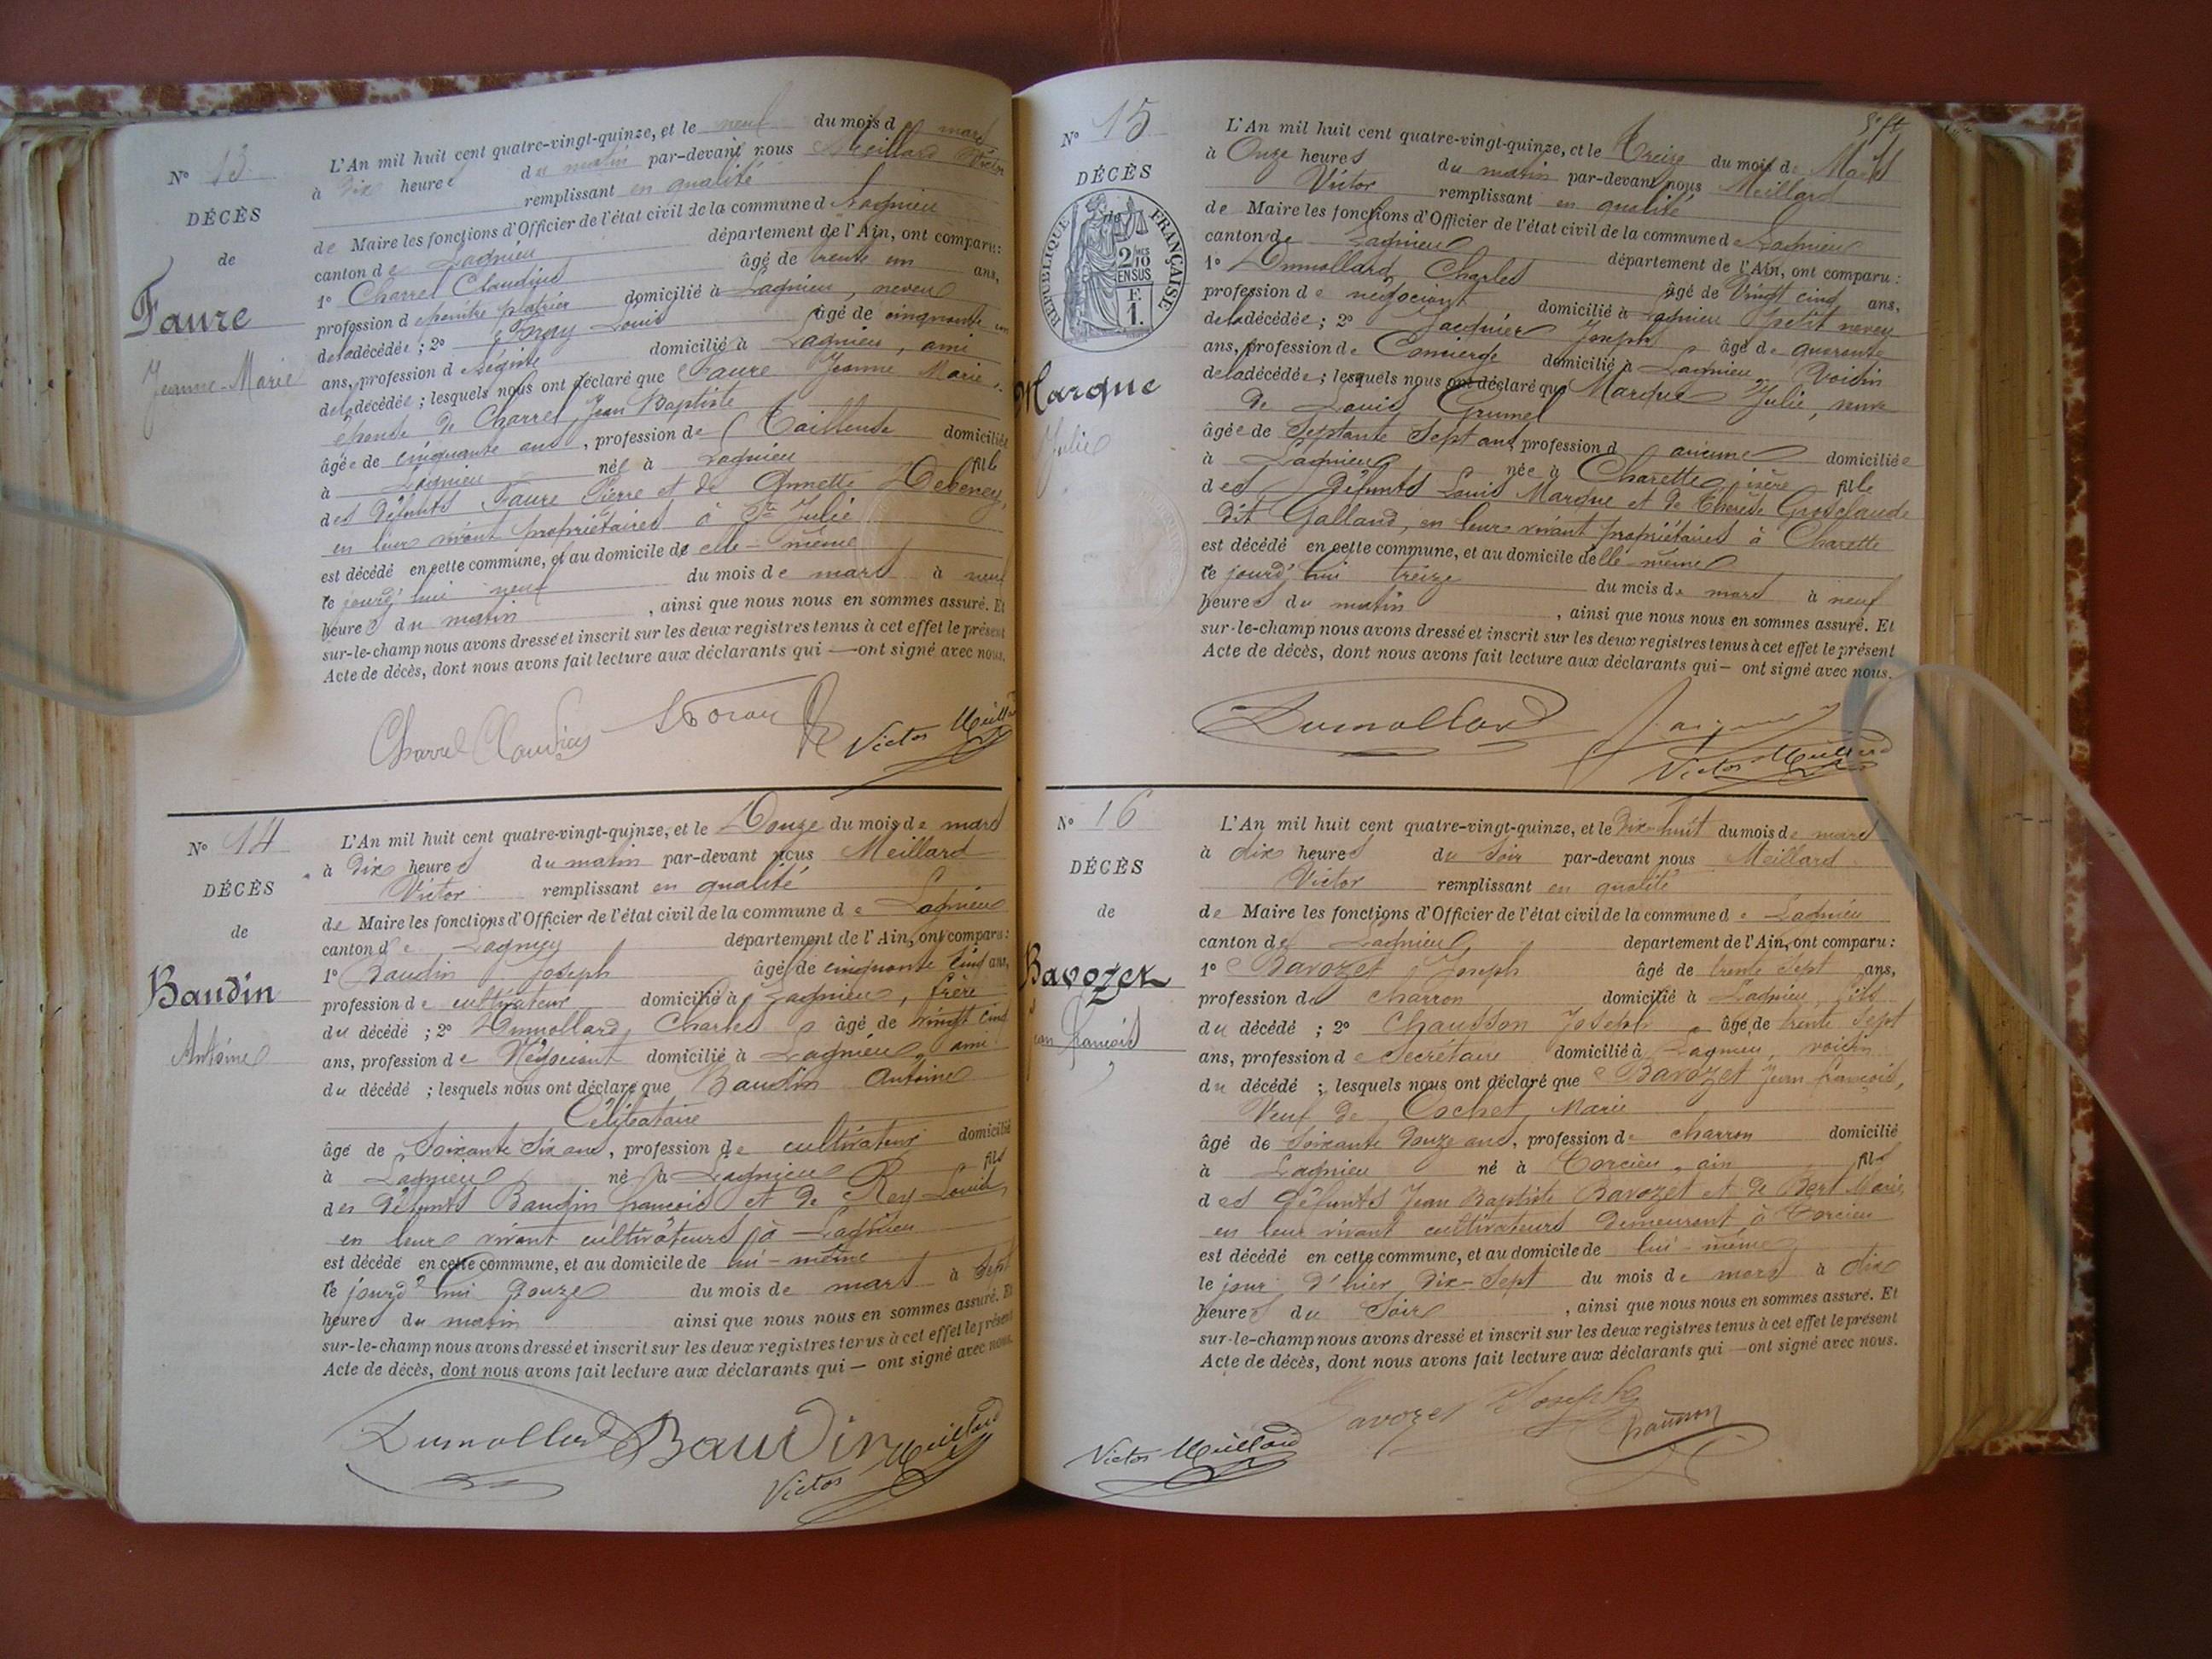 N° 13
DÉCÈS
de
Faure
Jeanne-Marie
L'An mil huit cent quatre-vingt-quinze, et le neuf du mois de mars
à Dix heures du matin par-devant nous Meillard Victor
remplissant en qualité
de Maire les fonctions d'Officier de l'état civil de la commune de Lagnieu
canton de Lagnieu département de l'Ain, ont comparu:
1° Charrel Claudius âgé de trente un ans,
profession de peintre platrier domicilié à Lagnieu, neveu
de la décédée; 2° Louis âgé de cinquante un
ans, profession de domicilié à Lagnieu, ami
de la décédée; lesquels nous ont déclaré que Faure Jeanne Marie
épouse de Charrel Jean Baptiste
âgée de cinquante ans, profession de Tailleuse domiciliée
à Lagnieu née à Lagnieu fille
des défunts Faure Pierre et de Annette Debeney,
en leur vivant propriétaires à Ste Julie
est décédé en cette commune, et au domicile de elle-même
le jourd'hui neuf du mois de mars à neuf
heures du matin, ainsi que nous nous en sommes assuré. Et
sur-le-champ nous avons dressé et inscrit sur les deux registres tenus à cet effet le présent
Acte de décès, dont nous avons fait lecture aux déclarants qui — ont signé avec nous.
Charrel Claudius Victor Meillard
N° 14
DÉCÈS
de
Baudin
Antoine
L'An mil huit cent quatre-vingt-quinze, et le Douze du mois de mars
à Dix heures du matin par-devant nous Meillard
Victor remplissant en qualité
de Maire les fonctions d'Officier de l'état civil de la commune de Lagnieu
canton de Lagnieu département de l'Ain, ont comparu:
1° Baudin Joseph âgé de cinquante cinq ans,
profession de cultivateur domicilié à Lagnieu, frère
du décédé; 2° Dumollard Charles âgé de vingt cinq
ans, profession de Négociant domicilié à Lagnieu ami
du décédé; lesquels nous ont déclaré que Baudin Antoine
Célibataire
âgé de Soixante Six ans, profession de cultivateur domicilié
à Lagnieu né à Lagnieu fils
des défunts Baudin françois et de Rey Louise,
en leur vivant cultivateurs à Lagnieu
est décédé en cette commune, et au domicile de lui-même
le jourd'hui douze du mois de mars à sept
heures du matin ainsi que nous nous en sommes assuré. Et
sur-le-champ nous avons dressé et inscrit sur les deux registres tenus à cet effet le présent
Acte de décès, dont nous avons fait lecture aux déclarants qui — ont signé avec nous.
Dumollard Baudin
Victor Meillard
N° 15
DÉCÈS
RÉPUBLIQUE FRANÇAISE
2/10 MES
EN SUS
F.
1.
Marque
Julie
L'An mil huit cent quatre-vingt-quinze, et le Treize du mois de Mars
à Onze heures du matin par-devant nous Meillard
Victor remplissant en qualité
de Maire les fonctions d'Officier de l'état civil de la commune de Lagnieu
canton de Lagnieu département de l'Ain, ont comparu:
1° Dumollard Charles âgé de Vingt cinq ans,
profession de négociant domicilié à Lagnieu petit neveu
de la décédée; 2° Jacquier Joseph âgé de quarante
ans, profession de Concierge domicilié à Lagnieu Voisin
de la décédée; lesquels nous ont déclaré que Marque Julie, veuve
de Louis Grumel
âgée de Septante Sept ans, profession d aucune domiciliée
à Lagnieu née à Charette isère fille
des Défunts Louis Marque et de Thérèse Grosclaude
dit Galland, en leur vivant propriétaires à Charette
est décédé en cette commune, et au domicile d'elle-même
le jourd'hui treize du mois de mars à neuf
heures du matin, ainsi que nous nous en sommes assuré. Et
sur-le-champ nous avons dressé et inscrit sur les deux registres tenus à cet effet le présent
Acte de décès, dont nous avons fait lecture aux déclarants qui — ont signé avec nous.
Dumollard
Victor Meillard
N° 16
DÉCÈS
de
Bavozet
Jean françois
L'An mil huit cent quatre-vingt-quinze, et le Dix-huit du mois de mars
à dix heures du Soir par-devant nous Meillard
Victor remplissant en qualité
de Maire les fonctions d'Officier de l'état civil de la commune de Lagnieu
canton de Lagnieu departement de l'Ain, ont comparu:
1° Bavozet Joseph âgé de trente Sept ans,
profession de charron domicilié à Lagnieu, fils
du décédé; 2° Chausson Joseph âgé de trente Sept
ans, profession de Secrétaire domicilié à Lagnieu, voisin
du décédé; lesquels nous ont déclaré que Bavozet Jean françois,
Veuf de Cochet Marie
âgé de Soixante Douze ans, profession de charron domicilié
à Lagnieu né à Torcieu, ain fils
des défunts Jean Baptiste Bavozet et de Bert Marie,
en leur vivant cultivateurs demeurant à Torcieu
est décédé en cette commune, et au domicile de lui-même
le jour d'hier Dix-Sept du mois de mars à dix
heures du Soir, ainsi que nous nous en sommes assuré. Et
sur-le-champ nous avons dressé et inscrit sur les deux registres tenus à cet effet le présent
Acte de décès, dont nous avons fait lecture aux déclarants qui — ont signé avec nous.
Bavozet Joseph Chausson
Victor Meillard